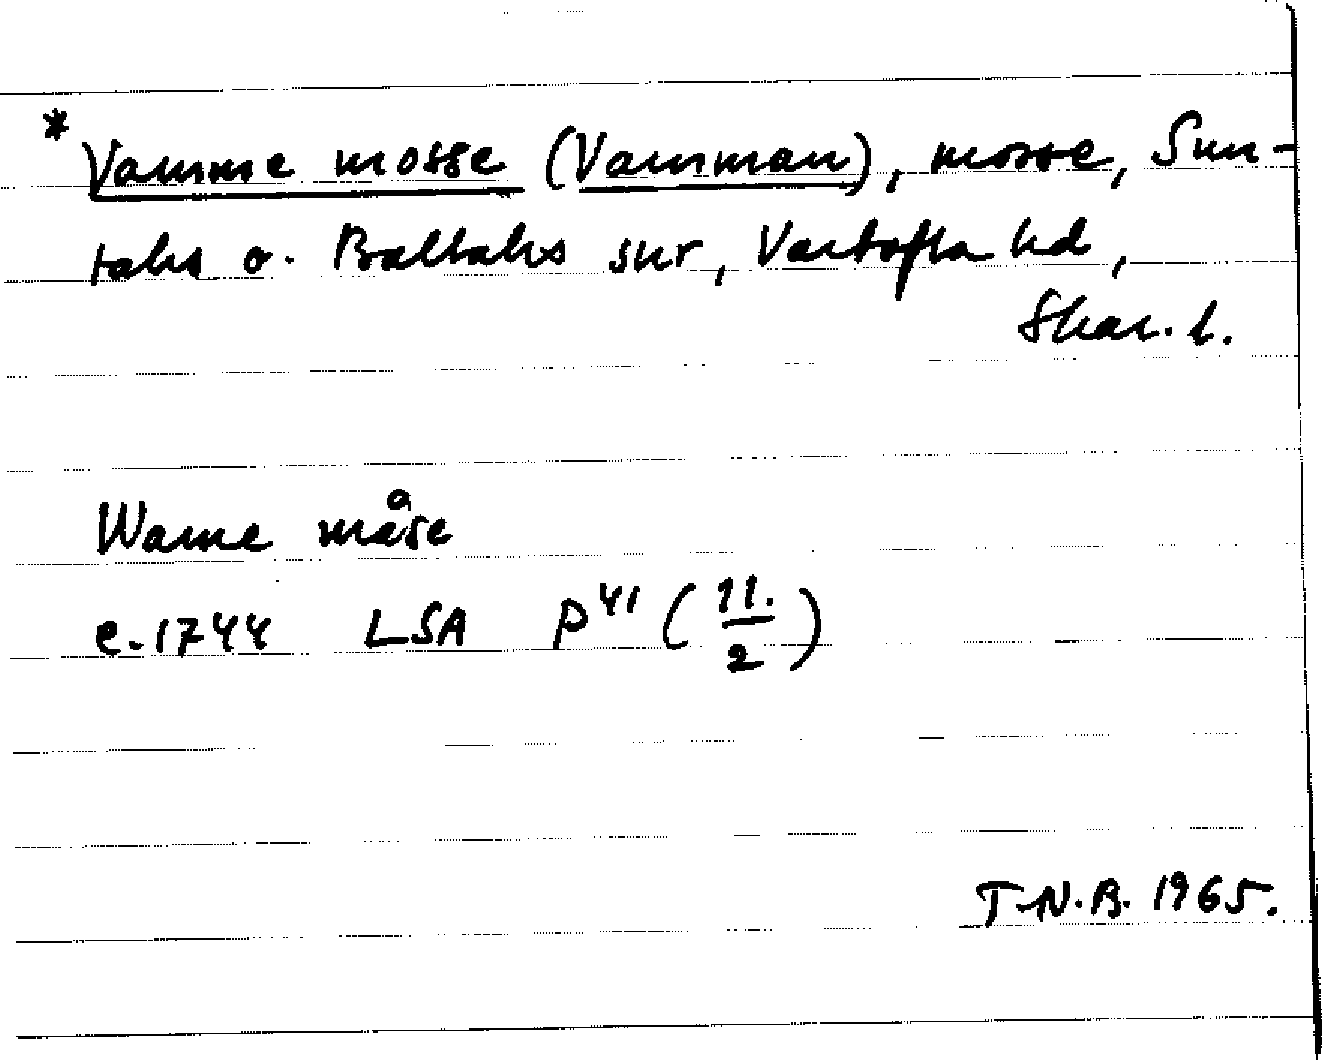 * Vamme mosse (Vamman), mosse, Sun-
taks o. Baltaks snr, Vartofta hd,
Skar. l.
Wame måse
c. 1744 LSA P41 (11./2)
T.N.B. 1965.